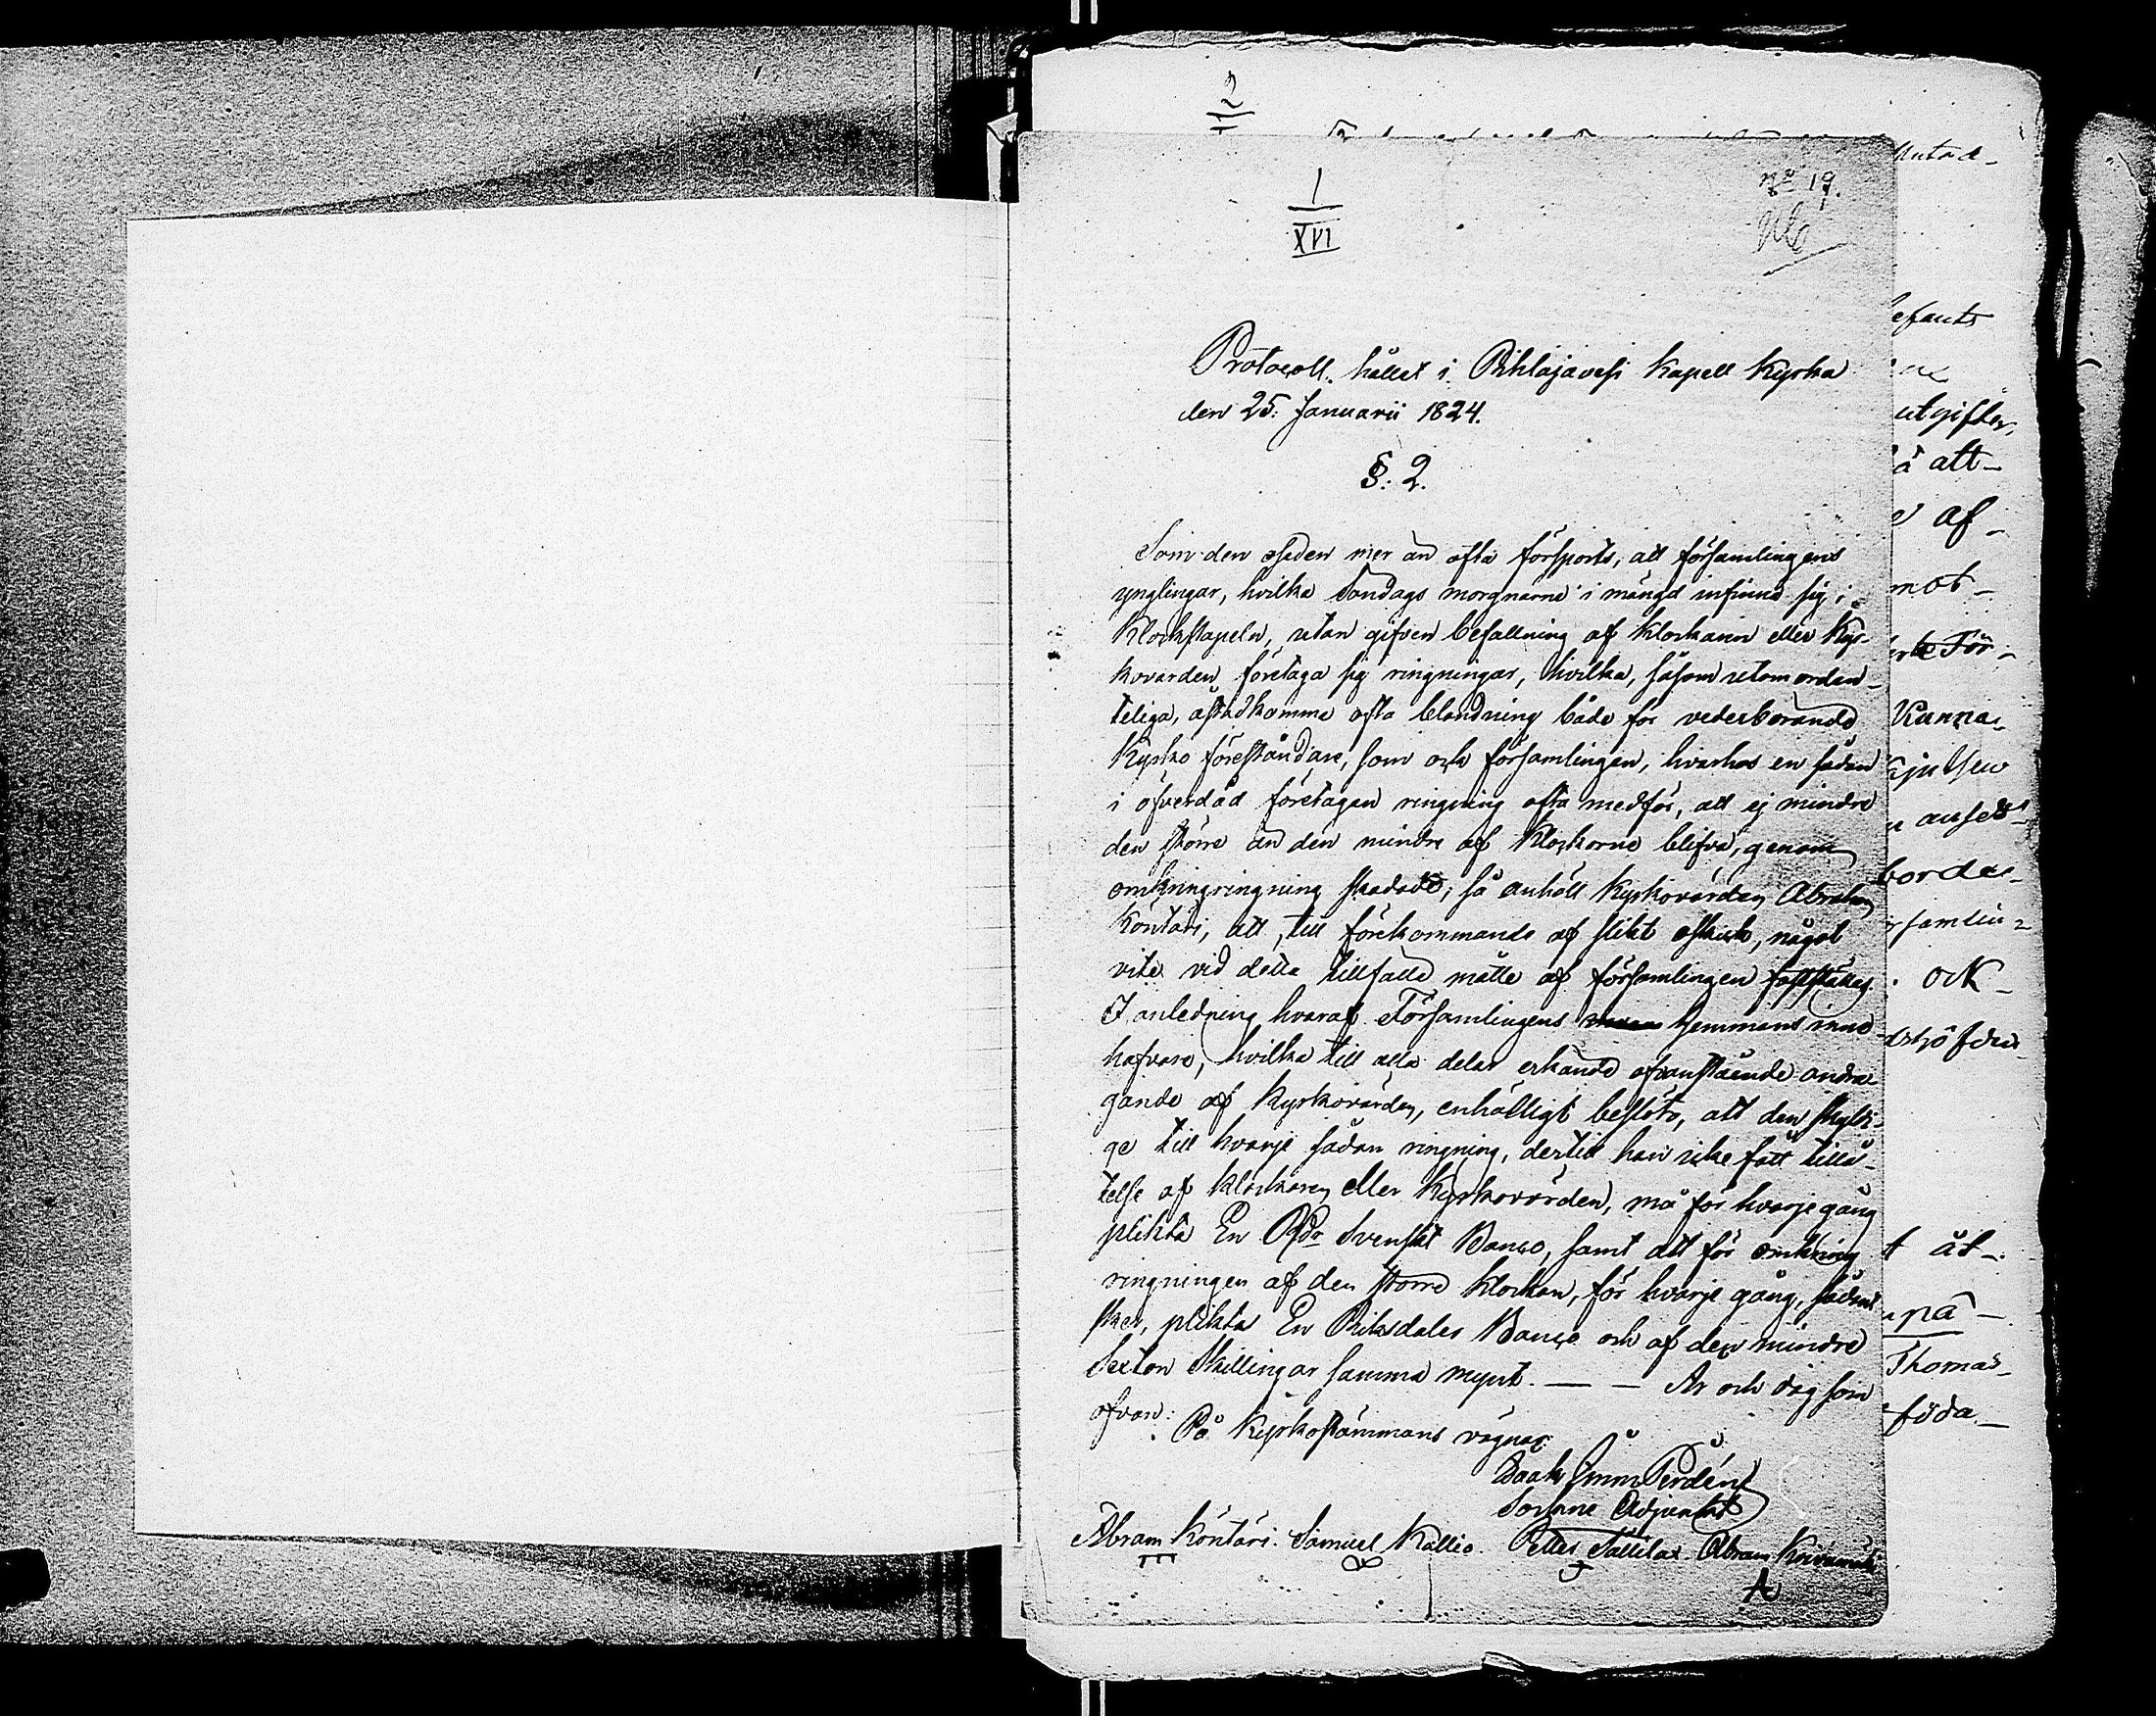 2
1
XVI
No 19.
Protocoll hållet i Pihlajavesi Kapell Kyrka
den 25. Januarii 1824.
§. 2.
Som den osjeden mer än ofta försports, att församlingens
ynglingar, hvilka Söndags morgnarne i mängd infinna sig i
Klockstapeln, utan gifven befallning af klockaren eller Kyr-
kovärden företaga sig ringningar, hvilka, såsom utom orden-
teliga, åstadkomma ofta blandning både för vederbörande
Kyrko föreståndare, som och församlingen, hvarhos en sådan
i öfverdåd företagen ringning ofta medför, att ej mindre
den större än den mindre af Klockorne blifva, genom
omkringringning skadade; så anhöll Kyrkovärden Abraham
Köntäri, att, till förekommande af slikt ofskick, något
vite vid detta tillfälle måtte af församlingen fastställas.
I anledning hvaraf Församlingens hemmans inne-
hafvare, hvilka till alla delar erkände ofvanstående andra-
gande af Kyrkovärden, enhälligt beslöto, att den skyldi-
ge till hvarje sådan ringning, dertill han icke fått tillå-
telse af klockaren eller Kyrkovärden, må för hvarje gång
plikta En Rdr Svenskt Banco, samt att för omkring
ringningen af den större klockan, för hvarje gång, sådant
sker, plikta En Riksdaler Banco och af den mindre
Sexton Skillingar samma mynt. — — År och dag som
ofvan.
På Kyrkostämmans vägnar
Isaak Imm Perdén
Sockne Adjunkt
Abram Köntäri. Samuel Kallio. Petter Sällilä. Abram
efauts
utgifter,
å att-
af-
mot-
För-
Kunna-
borde-
ock-
t åt-
på-
Thomas-
föda-